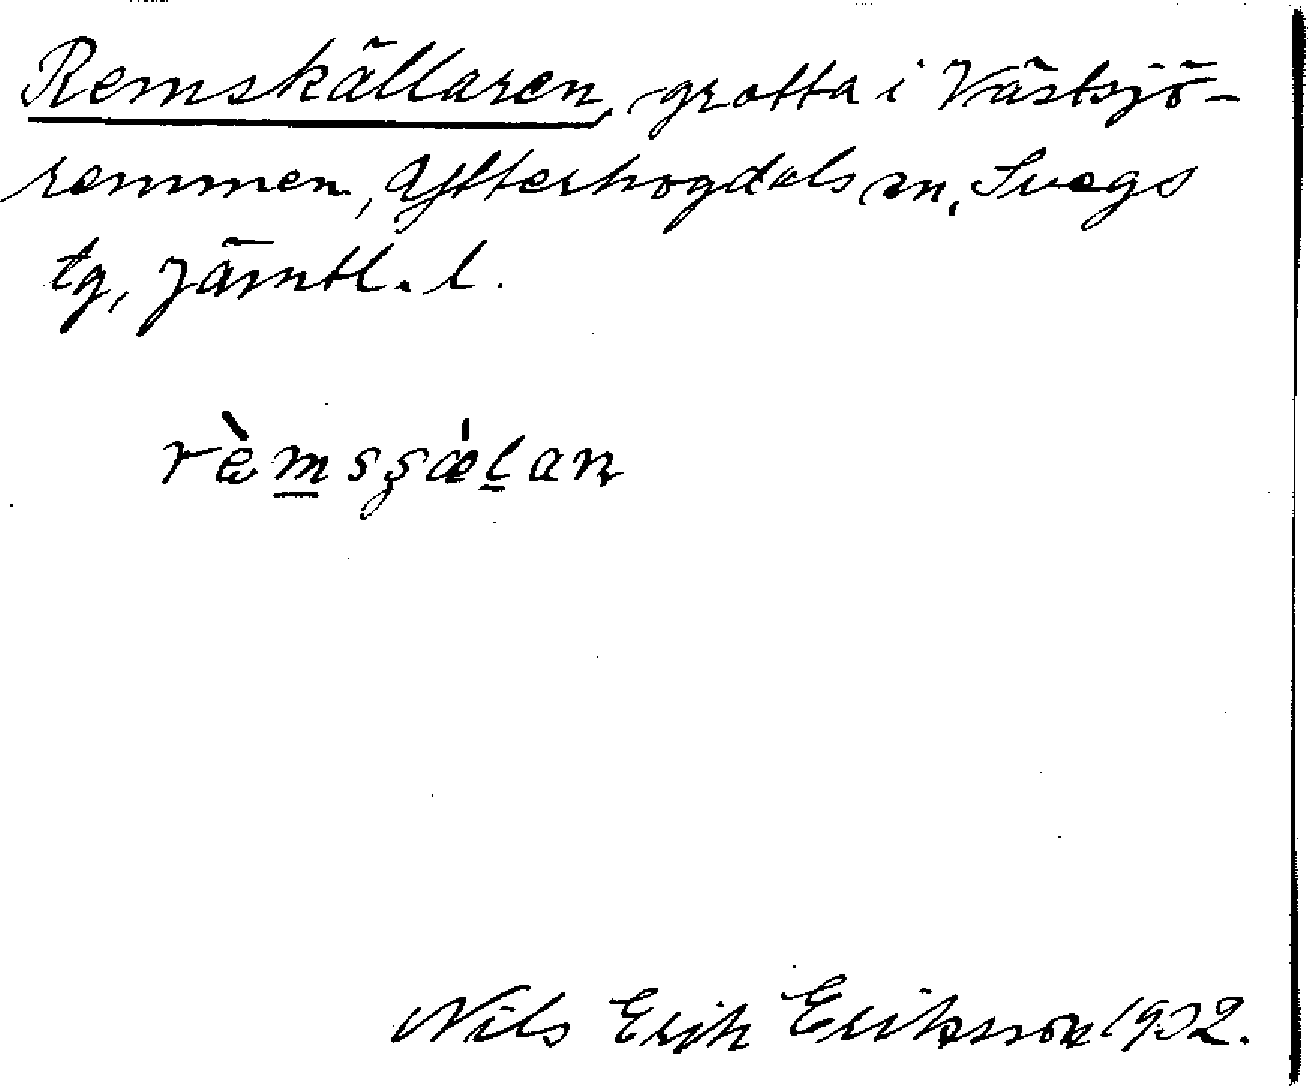 Remskällaren, grotta i Västsjö-
remmen, Ytterhogdals sn, Svegs
tg, Jämtl. l.
Nils Erik Eriksson 1932.